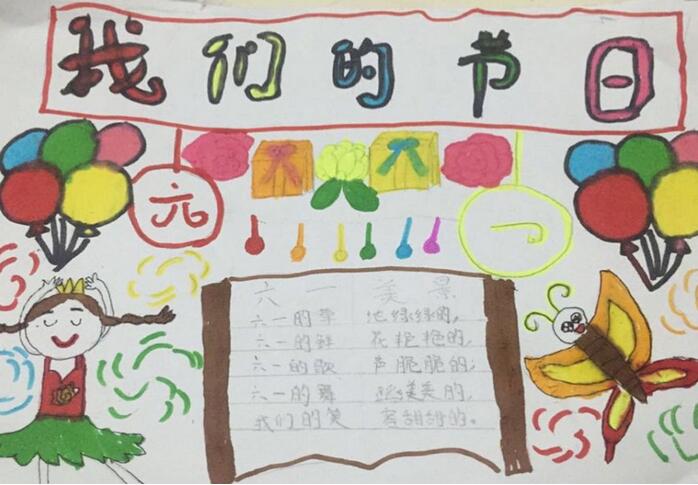 我们的节日
六 一
六一美景
六一的草 地绿绿的,
六一的鲜 花艳艳的,
六一的歌 声脆脆的;
六一的舞 美美的,
我们的笑 容甜甜的。